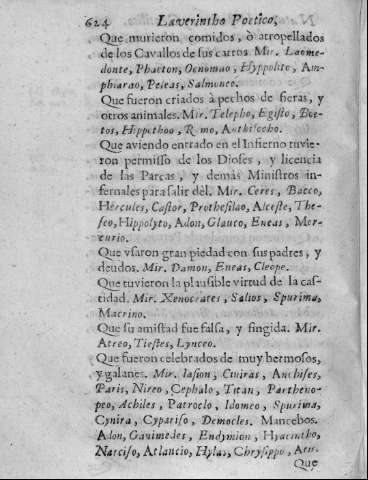 624 Laverintho Poetico,
Que murieron comidos, ò atropellados
de los Cavallos de sus carros. Mir. Laome-
donte, Phaeton, Oenomao, Hyppolito, Am-
phiarao, Peleas, Salmoneo.
Que fueron criados à pechos de fieras, y
otros animales. Mir. Telepho, Egisto, Boe-
tos, Hippothoo, Remo,
Que aviendo entrado en el Infierno tuvie-
ron permisso de los Dioses, y licencia
de las Parcas, y demás Ministros in-
fernales para salir dèl. Mir. Ceres, Bacco,
Hercules, Castor, Prothesilao, Alceste, The-
seo, Hippolyto, Adon, Glauco, Eneas, Mer-
curio.
Que vsaron gran piedad con sus padres, y
deudos. Mir. Damon, Eneas, Cleope.
Que tuvieron la plausible virtud de la cas-
tidad. Mir. Xenocrates, Salios, Spurima,
Macrino.
Que su amistad fue falsa, y fingida. Mir.
Atreo, Tiestes, Lynceo.
Que fueron celebrados de muy hermosos,
y galanes. Mir. Iasion, Ciniras, Anchises,
Paris, Nireo, Cephalo, Titan, Partheno-
peo, Achiles, Patroclo, Idomeo, Spurima,
Cynira, Cypariso, Democles. Mancebos.
Adon, Ganimedes, Endymion, Hyacintho,
Narciso, Atlancio, Hylas, Chrysippo,
Que